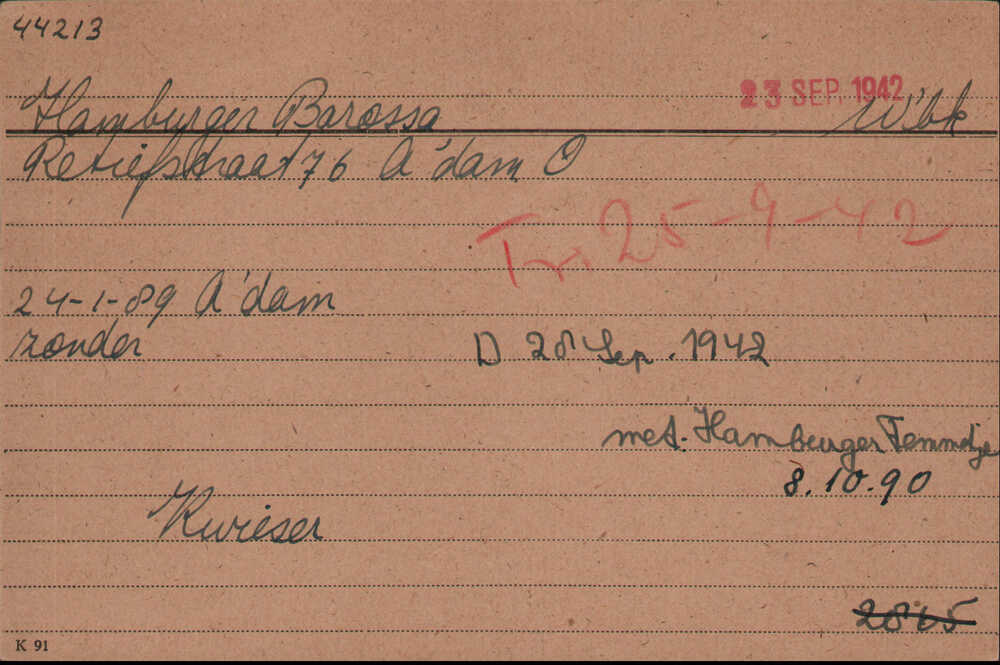 44213
23 SEP. 1942
Hamburger Barossa W'bk
Retiefstraat 76 A'dam O
Tr. 25-9-42
24-1-89 A'dam
zonder
D 28 Sep. 1942
met. Hamburger Femmetje
8.10.90
Kwieser
K 91